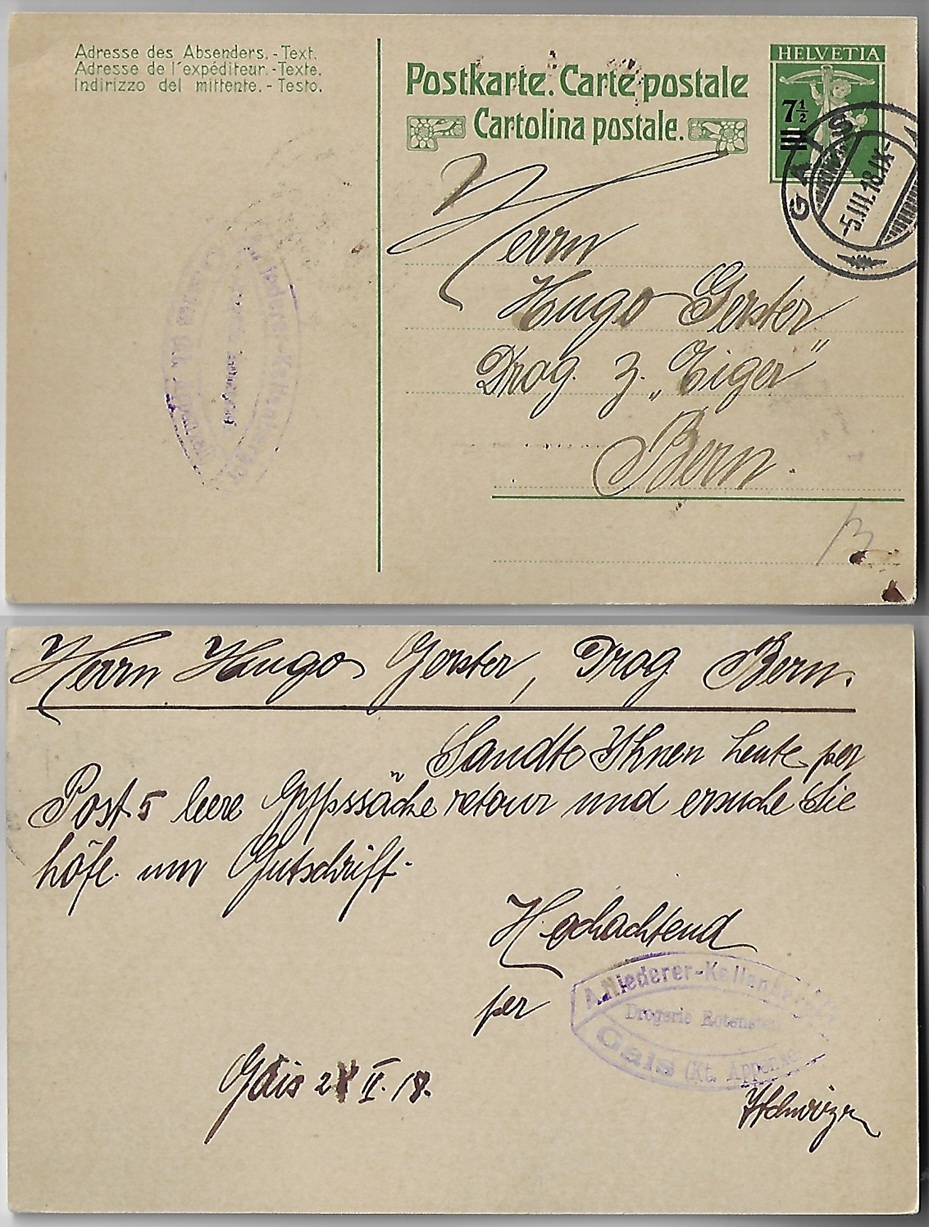 Adresse des Absenders. - Text.
Adresse de l'expéditeur. - Texte.
Indirizzo del mittente. - Testo.
Postkarte. Carte postale
Cartolina postale.
HELVETIA
7½
GAIS
-5.III.18.IX-
Herrn
Hugo Gerster
Drog. z. „Tiger"
Bern.
Herrn Hugo Gerster, Drog. Bern.
Sandte Ihnen heute per
Post 5 leere Gypssäcke retour und ersuche Sie
höfl. um Gutschrift.
Hochachtend
per
A. Niederer-Kellenberger
Drogerie Rotenstein
Gais (Kt. Appenzell)
Gais 2 II. 18.